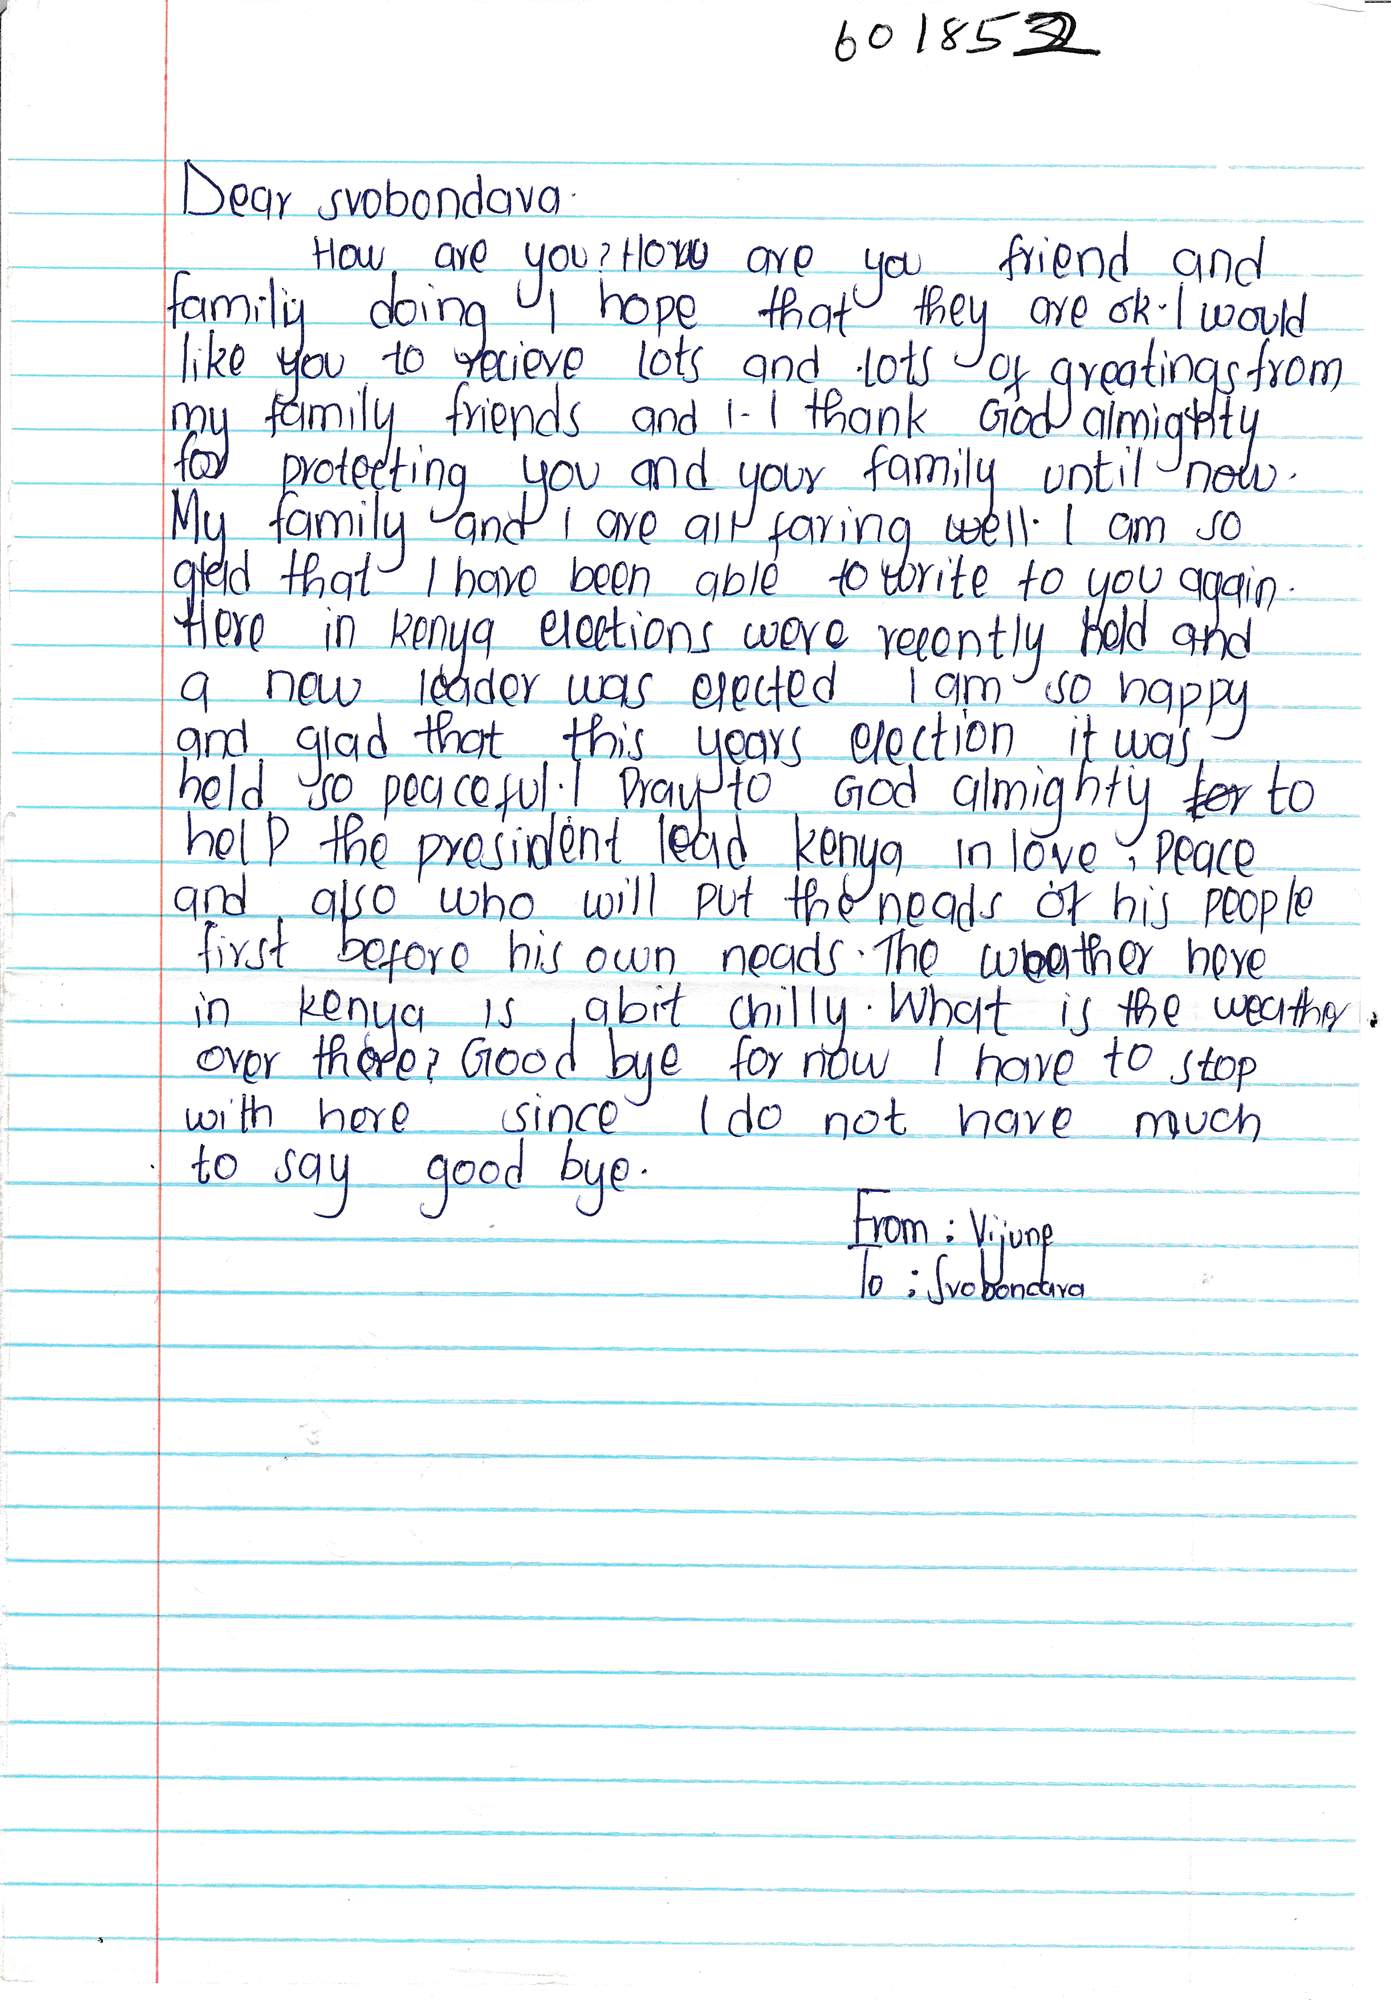 601852
Dear svobondava.
How are you? How are you friend and
family doing I hope that they are ok. I would
like you to recieve lots and lots of greatings from
my family friends and I. I thank God almighty
for protecting you and your family until now.
My family and I are all faring well. I am so
glad that I have been able to write to you again.
Here in kenya elections were recently held and
a new leader was elected I am so happy
and glad that this years election it was
held so peaceful. I pray to God almighty for to
help the president lead kenya in love, peace
and also who will put the neads of his people
first before his own neads. The weather here
in kenya is abit chilly. What is the weather
over there? Good bye for now I have to stop
with here since I do not have much
to say good bye.
From : Vijune
To : Svobondava